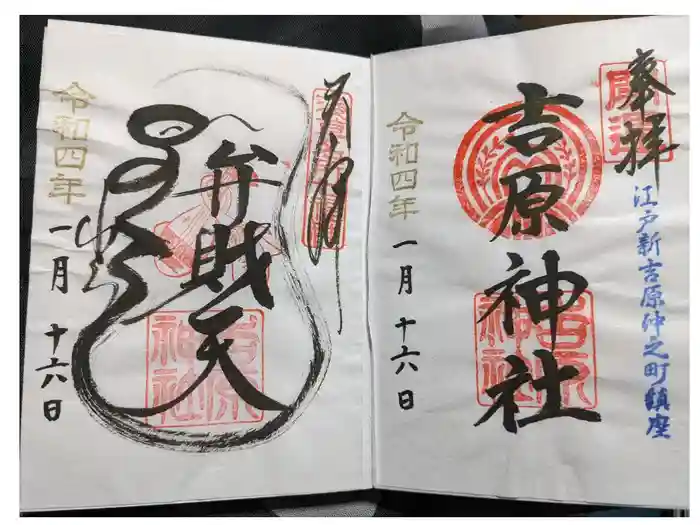 奉拝
江戸新吉原仲之町鎮座
吉原神社
令和四年
一月十六日
奉拝
弁財天
吉原神社
令和四年
一月十六日